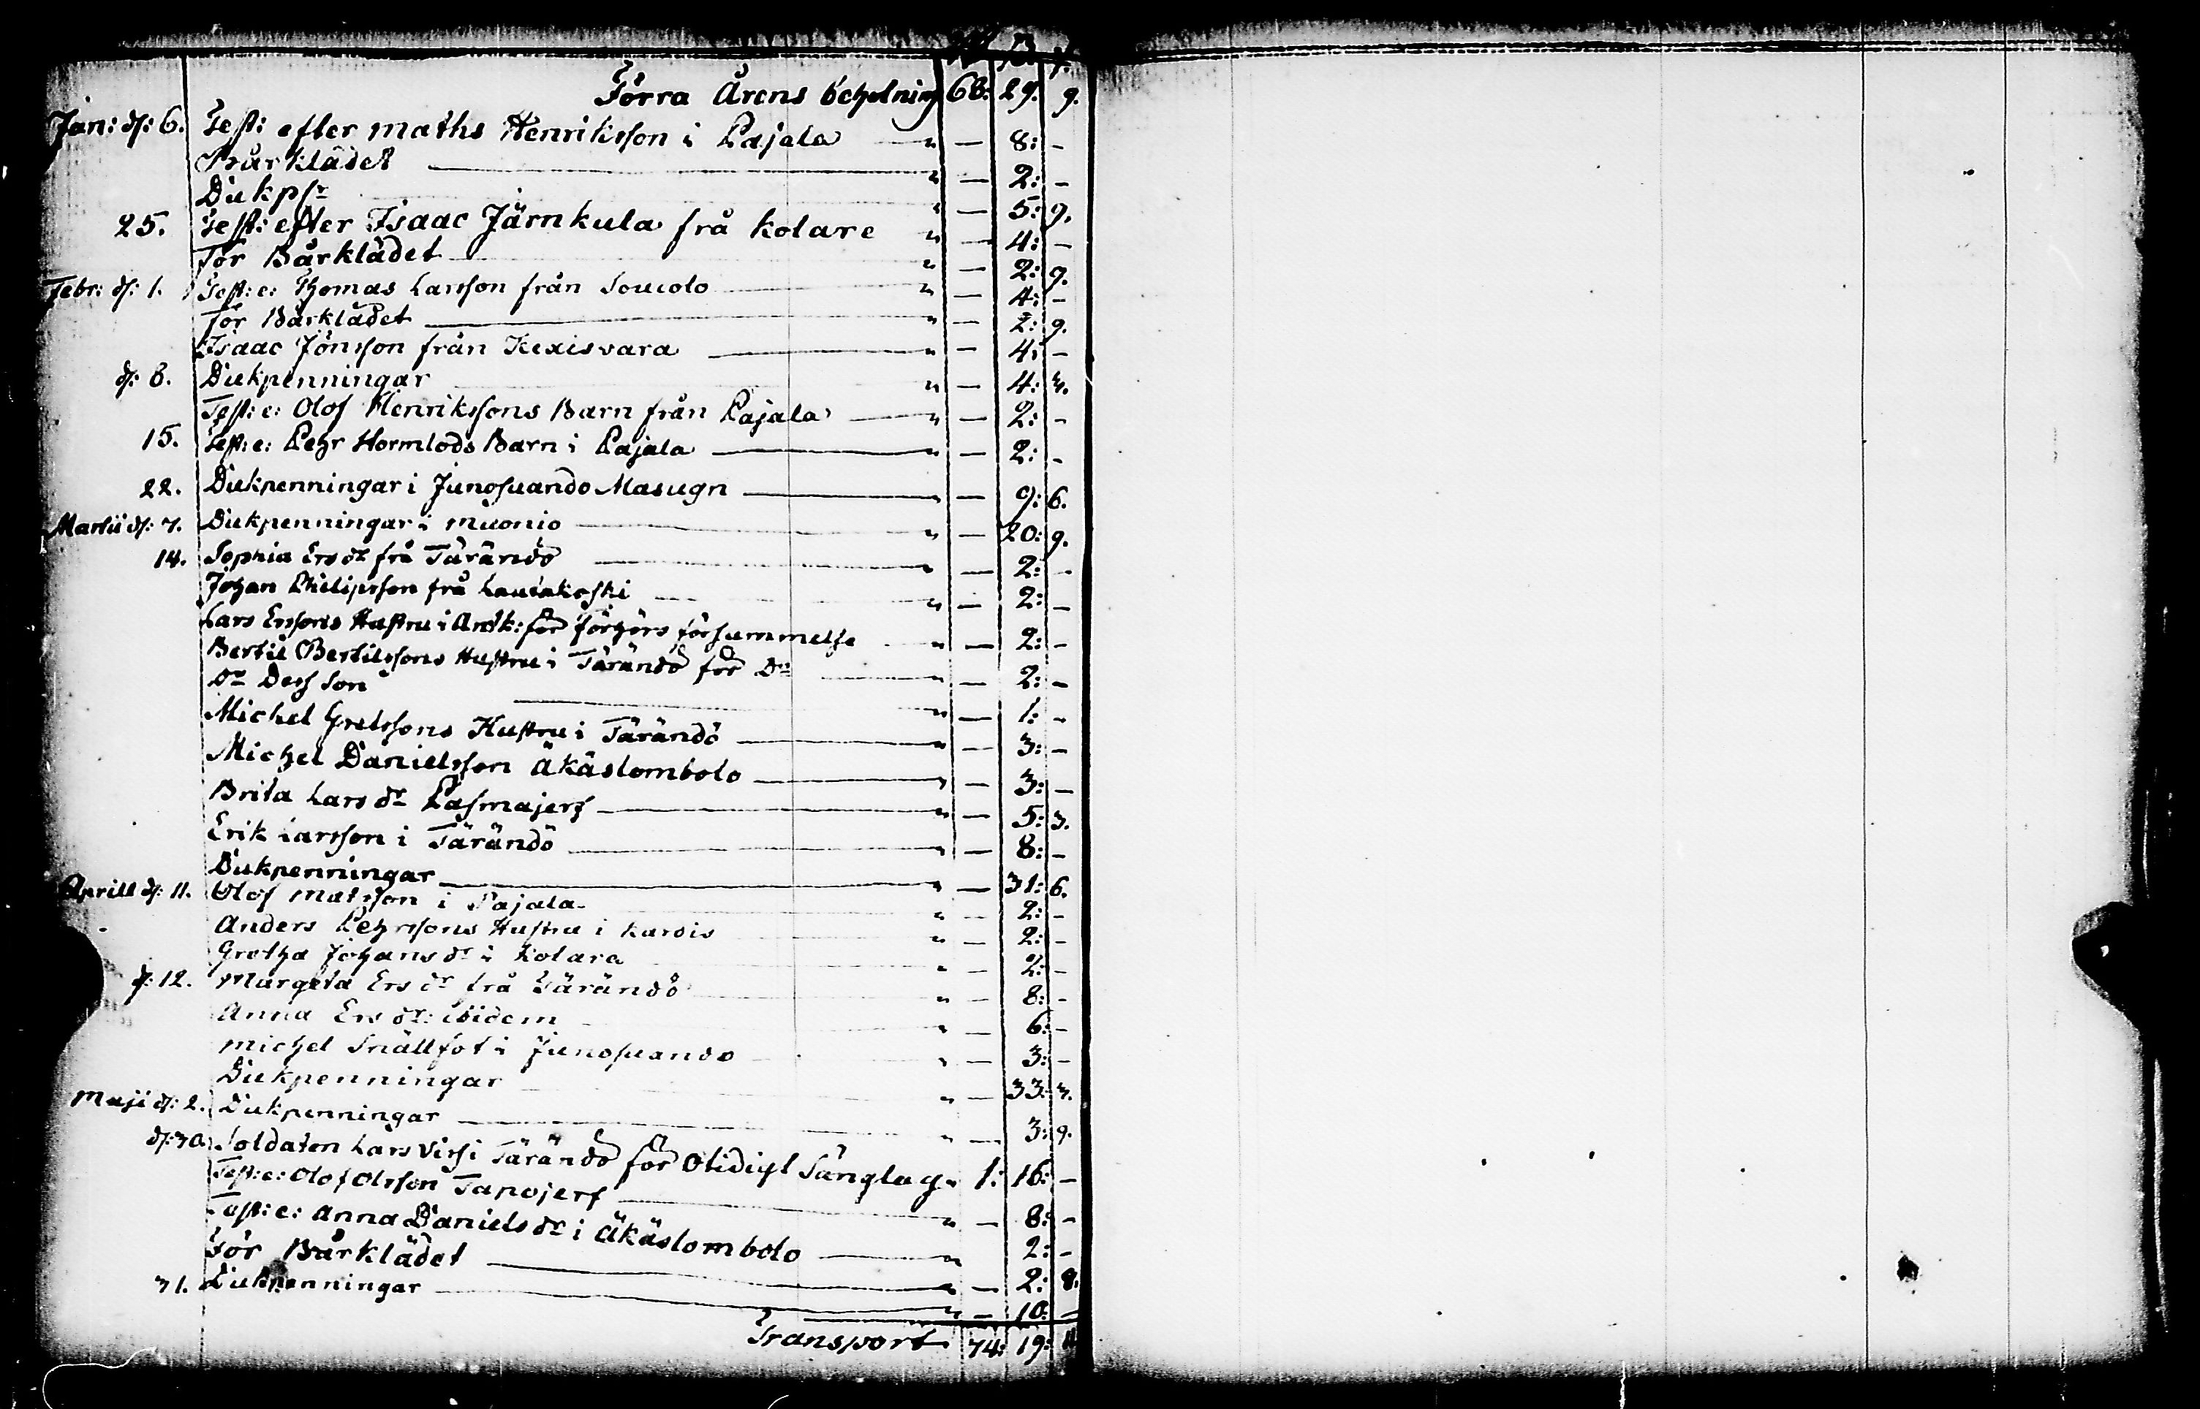 Förra Årens behålning 68: 29. 9.
Jan: d: 6. Test: efter maths Henriksson i Pajala " — 8: -
Bårklädet " — 2: -
Diukpr " — 5: 9.
25. Test: efter Isaac Järnkula frå Kolare " — 4: -
för Bårklädet " — 2: 9.
Febr: d: 1. Test: e: Thomas Larsson från " — 4: -
för Bårklädet " — 2: 9.
Isaac Jönsson från Kexisvara " — 4: -
d: 8. Diukpenningar " — 4: 3.
Test: e: Olof Henrikssons Barn från Pajala " — 2: -
15. Test: e: Pehr Hormlods Barn i Pajala " — 2: -
22. Diukpenningar i Junosuando Masugn " — 9: 6.
Martii d: 7. Diukpenningar i muonio " — 20: 9.
14. Sophia Ers dr frå Tärändö " — 2: -
Johan Philipsson frå Lauiakoski " — 2: -
Lars Erssons Hustru i för förhörs försummelse " — 2: -
Bertil Bertilssons Hustru i Tärändö för Do " — 2: -
Do Dess Son " — 1: -
Michel Gretssons Hustru i Tärändö " — 3: -
Michel Danielsson Äkäslombolo " — 3: -
Brita Lars dr Pasmajerf " — 5: 3.
Erik Larsson i Tärändö " — 8: -
Diukpenningar " — 31: 6.
Aprill d: 11. Olof matsson i Pajala " — 2: -
Anders Pehrssons Hustru i Kardis " — 2: -
Gretha Johans dr i Kolara " — 2: -
d: 12. Margeta Ers dr frå Tärändö " — 8: -
Anna Ers dr: ibidem " — 6: -
michel Snällfot i Junosuando " — 3: -
Diukpenningar " — 33: 3.
Maji d: 2. Diukpenningar " — 3: 9.
d: 30. Soldaten Lars Virs i Tärändö för Otidigt Sänglag " 1: 16: -
Test: e: Olof Olsson Tanojerf " — 8: -
Test: e: Anna Daniels dr i Äkäslombolo " 2: -
För Bårklädet " — 2: 8.
31. Diukpenningar " — 10: -
Transport 74: 19: